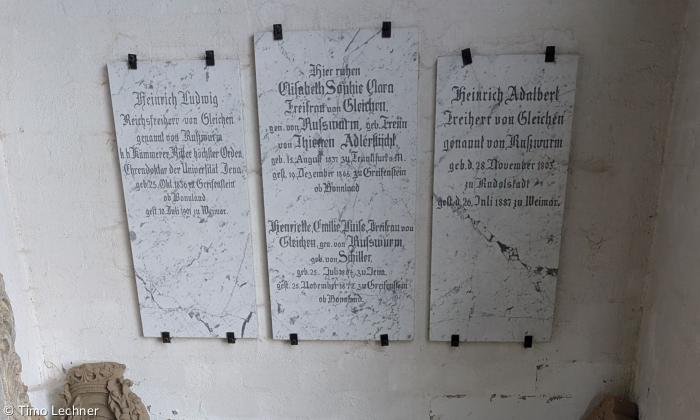 Heinrich Ludwig
Reichsfreiherr von Gleichen
genannt von Rußwurm
k.b. Kämmerer, Ritter höchster Orden
Ehrendoktor der Universität Jena
geb. 25. Okt. 1836 zu Greifenstein
ob Bonnland
gest. 10. Juli 1901 zu Weimar.
Hier ruhen
Elisabeth Sophie Clara
Freifrau von Gleichen,
gen. von Russwurm, geb. Freiin
von Thienen Adlerflicht
geb. 15. August 1837 zu Frankfurt a. M.
gest. 19. Dezember 1865 zu Greifenstein
ob Bonnland
Henriette, Emilie, Luise, Freifrau von
Gleichen, gen. von Russwurm,
geb. von Schiller,
geb. 25. Juli 1804 zu Jena,
gest. 25. November 1872 zu Greifenstein
ob Bonnland.
Heinrich Adalbert
Freiherr von Gleichen
genannt von Rußwurm
geb. d. 28. November 1803
zu Rudolstadt
gest. d. 26. Juli 1887 zu Weimar.
© Timo Lechner